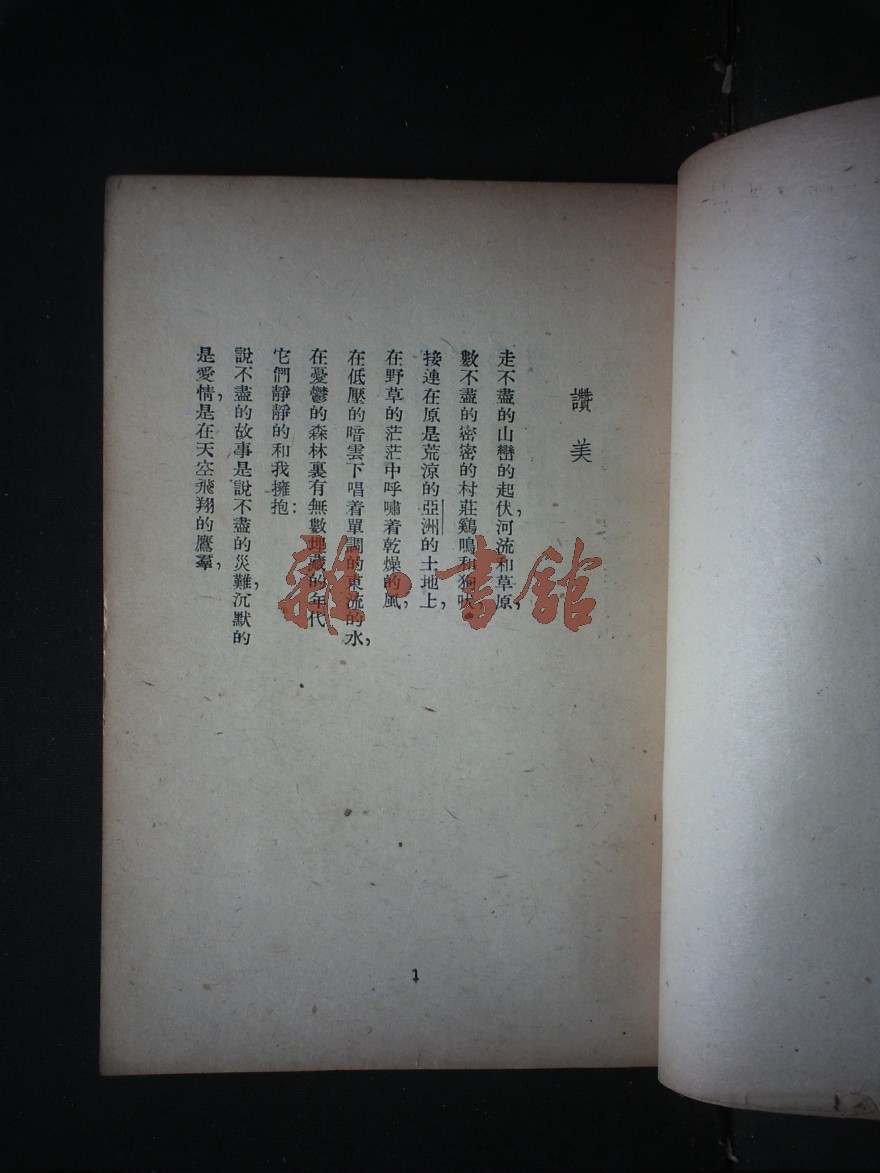 讚美
走不盡的山巒的起伏，河流和草原，
數不盡的密密的村莊，鷄鳴和狗吠，
接連在原是荒涼的亞洲的土地上，
在野草的茫茫中呼嘯着乾燥的風，
在低壓的暗雲下唱着單調的東流的水，
在憂鬱的森林裏有無數埋藏的年代
它們靜靜的和我擁抱：
說不盡的故事是說不盡的災難，沉默的
是愛情，是在天空飛翔的鷹羣，
1
雜·書館